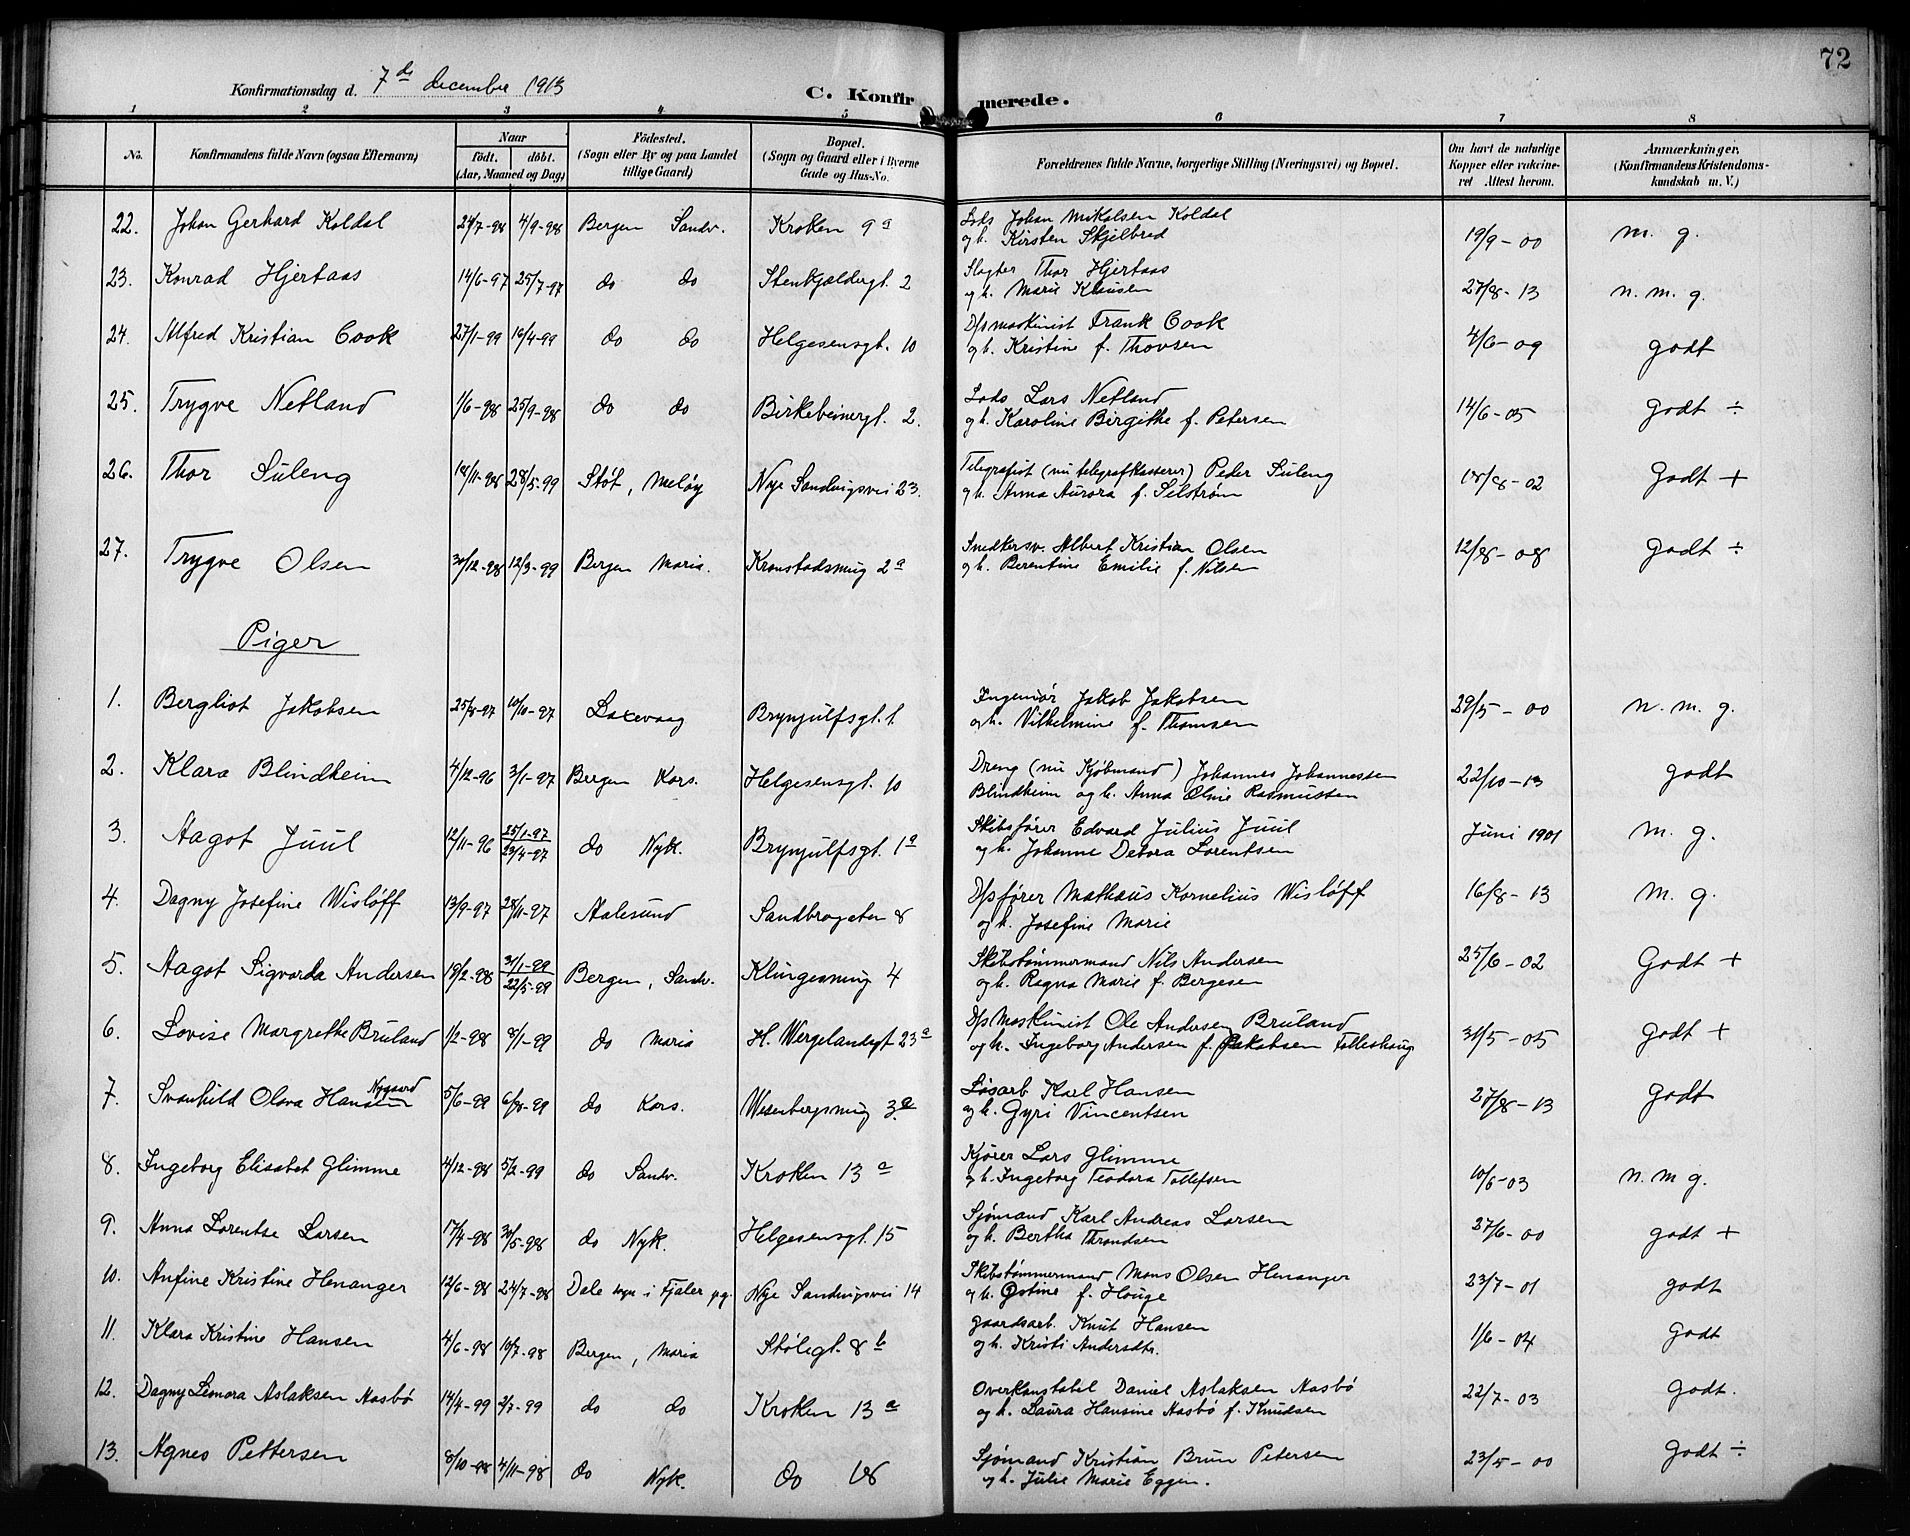 72
Konfirmationsdag d. 7de december 1913 C. Konfirmerede.
1 2 3 4 5 6 7 8
No. Konfirmandens fulde Navn (ogsaa Efternavn) Naar födt. döbt. (Aar, Maaned og Dag) Födested. (Sogn eller By og paa Landet tillige Gaard) Bopæl. (Sogn og Gaard eller i Byerne Gade og Hus-No. Forældrenes fulde Navne, borgerlige Stilling (Næringsvei) og Bopæl. Om havt de naturlige Kopper eller vakcineret Attest herom. Anmærkninger. (Konfirmandens Kristendomskundskab m. V.)
22. Johan Gerhard Koldal 24/7-98 4/9-98 Bergen Sandv. Kroken 9a Lods Johan Mikalsen Koldal 19/9-00 m. g.
og h. Kirsten Skjelbred
23. Konrad Hjertaas 14/6-97 25/7-97 do do Stenkjeldergt. 2 Slagter Thor Hjertaas 27/8-13 n. m. g.
og h. Marie Klausen
24. Alfred Kristian Cook 27/1-99 16/4-99 do do Helgesensgt. 10 D/smaskinist Frank Cook 4/6-09 godt
og h. Kristine f. Thovsen
25. Trygve Netland 1/6-98 25/9-98 do do Birkebeinergt. 2. Lods Lars Netland 14/6-05 Godt ÷
og h. Karoline Birgithe f. Petersen
26. Thor Suleng 18/11-98 28/5-99 Støt, Meløy Nye Sandvigsvei 23. Telegrafist (nu telegrafkasserer) Peder Suleng 18/8-02 Godt +
og h. Anna Aurora f. Selstrøm
27. Trygve Olsen 30/12-98 12/3-99 Bergen Maria. Kronstadsmug 2a Snedkersv. Albert Kristian Olsen 12/8-08 Godt ÷
og h. Berentine Emilie f. Nilsen
Piger
1. Bergliot Jakobsen 25/8-97 10/10-97 Laxevaag Brynjulfsgt. 1. Ingeniør Jakob Jakobsen 29/5-00 n. m. g.
og h. Vilhelmine f. Thomsen
2. Klara Blindheim 4/12-96 3/1-97 Bergen Kors. Helgesensgt. 10 Dreng (nu Kjøbmand) Johannes Johannessen 22/10-13 godt
Blindheim og h. Anna Oline Rasmussen
3. Aagot Juul 12/11-96 25/1-97 23/4-97 do Nyk. Brynjulfsgt. 1a Skibsfører Edvard Julius Juul Juni 1901 m. g.
og h. Johanne Debora Lorentsen
4. Dagny Josefine Wisløff 13/9-97 28/11-97 Aalesund Sandbrogaten 8 D/sfører Mathæus Kornelius Wisløff 16/8-13 m. g.
og h. Josefine Marie
5. Aagot Sigvarda Andersen 19/2-98 31/1-99 22/5-99 Bergen, Sandv. Klingesmug 4 Skibstømmermand Nils Andersen 25/6-02 Godt +
og h. Ragna Marie f. Bergesen
6. Lovise Margrethe Bruland 1/2-98 8/1-99 do Maria H. Wergelandsgt 23a D/s Maskinist Ole Andersen Bruland 31/5-05 Godt +
og h. Ingeborg Andersen f. Jakobsen Folleshaug
7. Svanhild Olava Hansen Nygaard 5/6-99 6/8-99 do Kors. Wesenbergsmug 3a Løsarb Karl Hansen 27/8-13 Godt
og h. Gyri Vincentsen
8. Ingeborg Elisabet Glimme 4/12-98 5/2-99 do Sandv. Kroken 13a Kjører Lars Glimme 10/6-03 n. m g.
og h. Ingeborg Teodora Tollefsen
9. Anna Lorentse Larsen 17/4-98 30/5-98 do Nyk. Helgesensgt. 15 Sjømand Karl Andreas Larsen 27/6-00 godt +
og h. Bertha Throndsen
10. Anfine Kristine Henanger 12/6-98 24/7-98 Dale sogn i Fjaler pg. Nye Sandvigsvei 14 Skibstømmermand Mons Olsen Henanger 23/7-01 godt
og h. Ostine f. Houge
11. Klara Kristine Hansen 4/6-98 10/7-98 Bergen, Maria Stølegt. 8b Gaardsarb. Knut Hansen 1/6-04 Godt
og h. Kristi Andersdtr.
12. Dagny Leonora Aslaksen Aasbø 14/4-99 2/7-99 do do Kroken 13a Overkonstabel Daniel Aslaksen Aasbø 22/7-03 Godt.
og h. Laura Hansine Aasbø f. Knudsen
13. Agnes Pettersen 8/10-98 4/11-98 do Nyk. do 18 Sjømand Kristian Brun Petersen 23/5-00 Godt ÷
og h. Julie Marie Eggen.